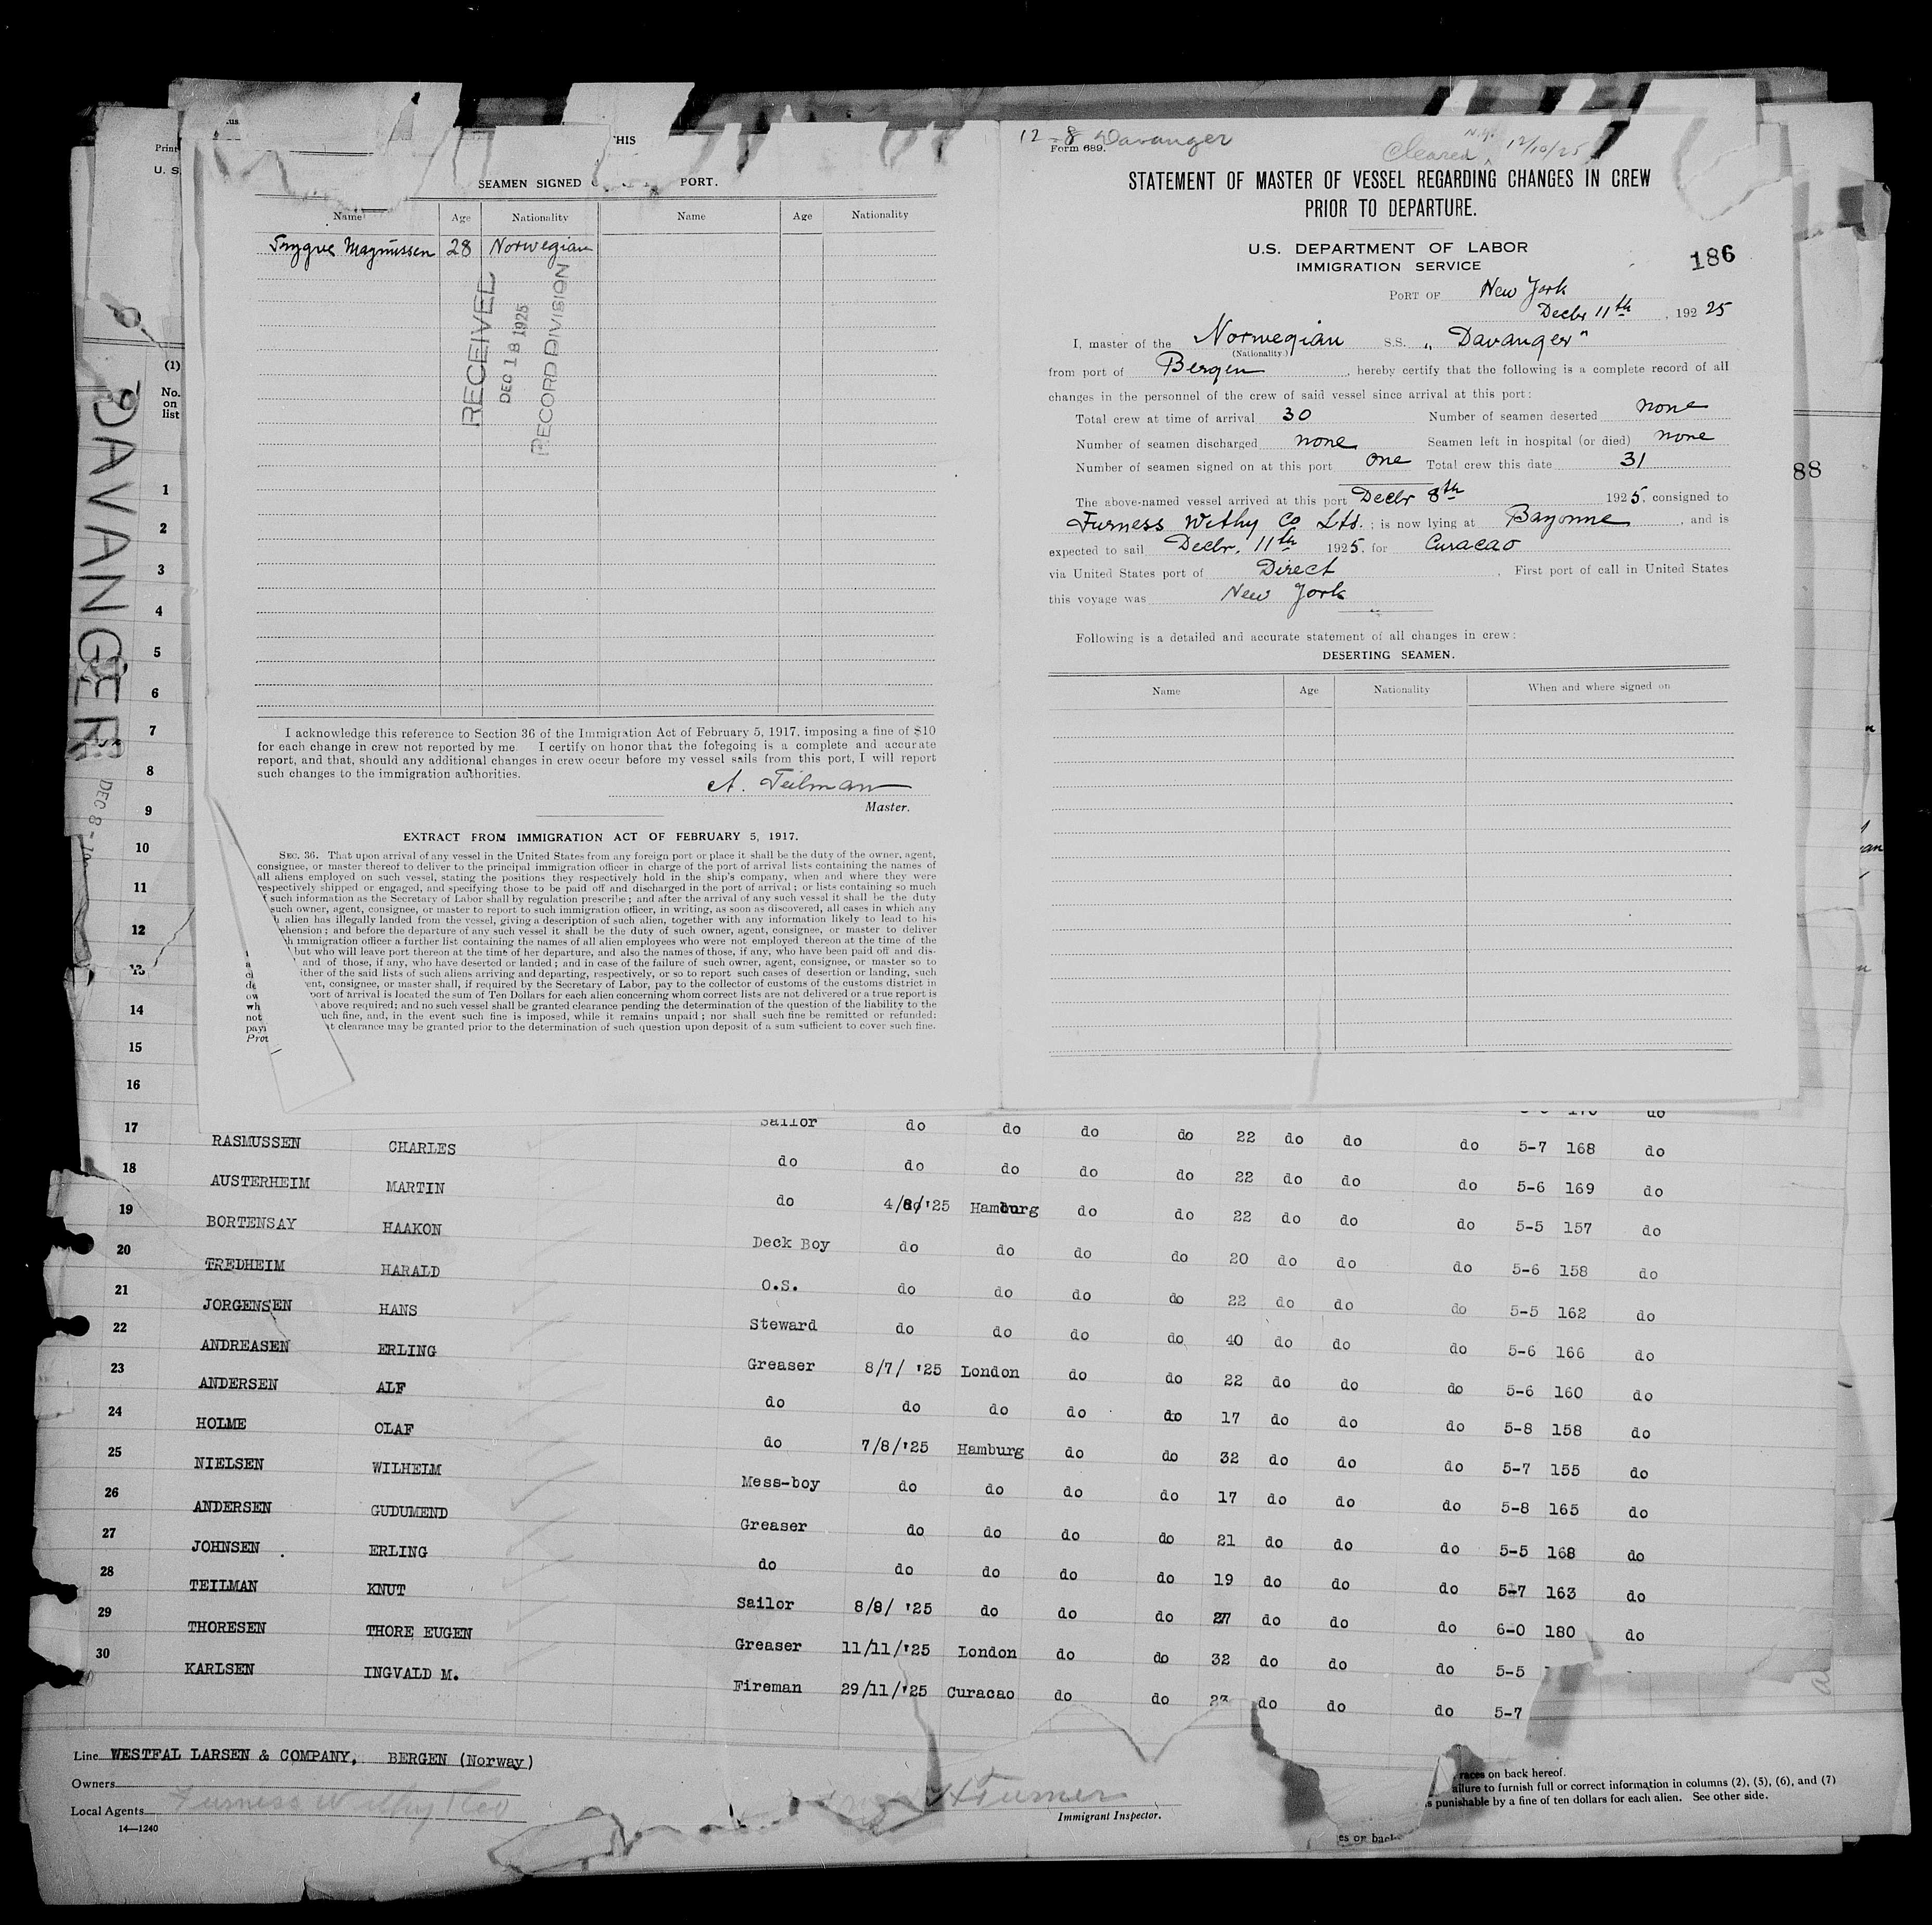 THIS
SEAMEN SIGNED PORT.
Name Age Nationality Name Age Nationality
Trygve Magnussen 28 Norwegian
RECEIVED
DEC 18 1925
RECORD DIVISION
I acknowledge this reference to Section 36 of the Immigration Act of February 5, 1917, imposing a fine of $10
for each change in crew not reported by me. I certify on honor that the foregoing is a complete and accurate
report, and that, should any additional changes in crew occur before my vessel sails from this port, I will report
such changes to the immigration authorities.
A. Teilman
Master.
EXTRACT FROM IMMIGRATION ACT OF FEBRUARY 5, 1917.
SEC. 36. That upon arrival of any vessel in the United States from any foreign port or place it shall be the duty of the owner, agent,
consignee, or master thereof to deliver to the principal immigration officer in charge of the port of arrival lists containing the names of
all aliens employed on such vessel, stating the positions they respectively hold in the ship's company, when and where they were
respectively shipped or engaged, and specifying those to be paid off and discharged in the port of arrival; or lists containing so much
such information as the Secretary of Labor shall by regulation prescribe; and after the arrival of any such vessel it shall be the duty
such owner, agent, consignee, or master to report to such immigration officer, in writing, as soon as discovered, all cases in which any
alien has illegally landed from the vessel, giving a description of such alien, together with any information likely to lead to his
ehension; and before the departure of any such vessel it shall be the duty of such owner, agent, consignee, or master to deliver
immigration officer a further list containing the names of all alien employees who were not employed thereon at the time of the
but who will leave port thereon at the time of her departure, and also the names of those, if any, who have been paid off and dis-
and of those, if any, who have deserted or landed; and in case of the failure of such owner, agent, consignee, or master so to
either of the said lists of such aliens arriving and departing, respectively, or so to report such cases of desertion or landing, such
ent, consignee, or master shall, if required by the Secretary of Labor, pay to the collector of customs of the customs district in
port of arrival is located the sum of Ten Dollars for each alien concerning whom correct lists are not delivered or a true report is
above required; and no such vessel shall be granted clearance pending the determination of the question of the liability to the
uch fine, and, in the event such fine is imposed, while it remains unpaid; nor shall such fine be remitted or refunded:
at clearance may be granted prior to the determination of such question upon deposit of a sum sufficient to cover such fine.
12-8 Davanger
Form 689.
Cleared N.Y. 12/10/25
STATEMENT OF MASTER OF VESSEL REGARDING CHANGES IN CREW
PRIOR TO DEPARTURE.
U.S. DEPARTMENT OF LABOR
IMMIGRATION SERVICE
186
PORT OF New York
Decbr 11th, 192 25
I, master of the Norwegian S.S. „Davanger"
(Nationality.)
from port of Bergen, hereby certify that the following is a complete record of all
changes in the personnel of the crew of said vessel since arrival at this port:
Total crew at time of arrival 30 Number of seamen deserted none
Number of seamen discharged none Seamen left in hospital (or died) none
Number of seamen signed on at this port one Total crew this date 31
The above-named vessel arrived at this port Decbr 8th 1925. consigned to
Furness Withy Co Ltd.; is now lying at Bayonne, and is
expected to sail Decbr. 11th 1925. for Curacao
via United States port of Direct. First port of call in United States
this voyage was New York
Following is a detailed and accurate statement of all changes in crew:
DESERTING SEAMEN.
Name Age Nationality When and where signed on
Print
U. S.
(1)
No.
on
list
DAVANGER
DEC 8-
88
1
2
3
4
5
6
7
8
9
10
11
12
13
14
15
16
17 RASMUSSEN CHARLES Sailor do do do do 22 do do do 5-7 168 do
18 AUSTERHEIM MARTIN do do do do do 22 do do do 5-6 169 do
19 BORTENSAY HAAKON do 4/8/'25 Hamburg do do 22 do do do 5-5 157 do
20 TREDHEIM HARALD Deck Boy do do do do 20 do do do 5-6 158 do
21 JORGENSEN HANS O.S. do do do do 22 do do do 5-5 162 do
22 ANDREASEN ERLING Steward do do do do 40 do do do 5-6 166 do
23 ANDERSEN ALF Greaser 8/7/ '25 London do do 22 do do do 5-6 160 do
24 HOLME OLAF do do do do do 17 do do do 5-8 158 do
25 NIELSEN WILHELM do 7/8/'25 Hamburg do do 32 do do do 5-7 155 do
26 ANDERSEN GUDUMEND Mess-boy do do do do 17 do do do 5-8 165 do
27 JOHNSEN ERLING Greaser do do do do 21 do do do 5-5 168 do
28 TEILMAN KNUT do do do do do 19 do do do 5-7 163 do
29 THORESEN THORE EUGEN Sailor 8/8/ '25 do do do 27 do do do 6-0 180 do
30 KARLSEN INGVALD M. Greaser 11/11/'25 London do do 32 do do do 5-5
Fireman 29/11/'25 Curacao do do 23 do do do 5-7
Line WESTFAL LARSEN & COMPANY, BERGEN (Norway)
Owners
Local Agents Furness Withy
14—1240
Turner
Immigrant Inspector.
races on back hereof.
ailure to furnish full or correct information in columns (2), (5), (6), and (7)
s punishable by a fine of ten dollars for each alien. See other side.
es on back